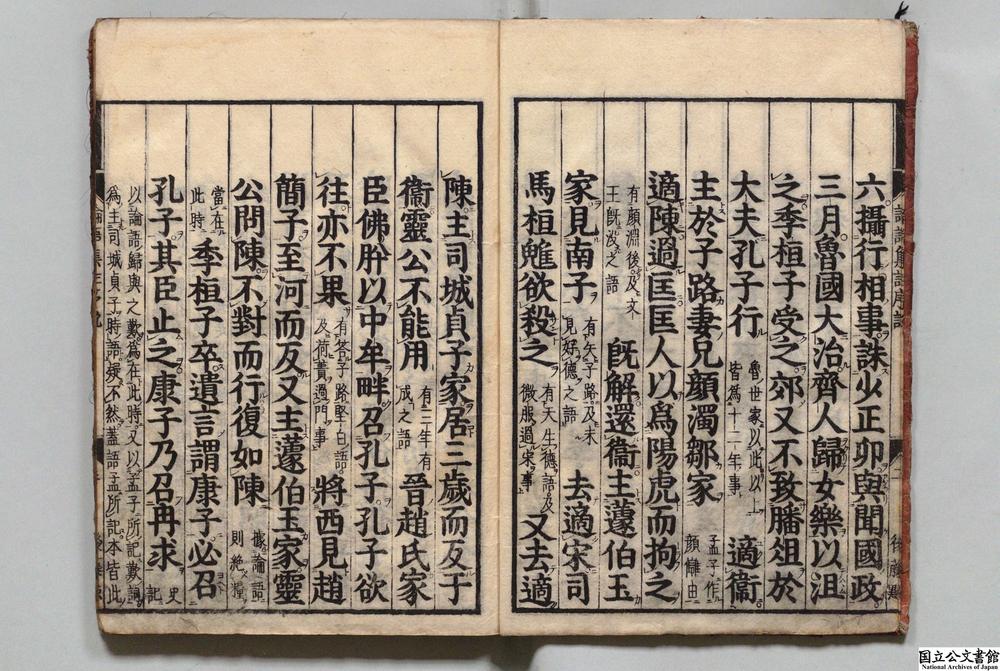 六攝行相事誅少正卯與聞國政
三月魯國大治齊人歸女樂以沮
之季桓子受之郊又不致膰俎於
大夫孔子行魯世家以此以上皆爲十二年事適衞
主於子路妻兄顔濁鄒家孟子作顔讎由
適陳過匡匡人以爲陽虎而拘之
有顔淵後及文王旣没之語旣解還衞主蘧伯玉
家見南子有矢子路及未見好德之語去適宋司
馬桓魋欲殺之有天生德語及微服過宋事又去適
陳主司城貞子家居三歳而反于
衞靈公不能用有三年有成之語晉趙氏家
臣佛肸以中牟畔召孔子孔子欲
往亦不果有答子路堅白語及荷蕢過門事將西見趙
簡子至河而反又主蘧伯玉家靈
公問陳不對而行復如陳據論語則絶糧
當在此時季桓子卒遺言謂康子必召
孔子其臣止之康子乃召冉求史記
以論語歸與之歎爲在此時又以孟子所記歎詞
爲主司城貞子時語疑不然蓋語孟所記本皆此
国立公文書館
National Archives of Japan